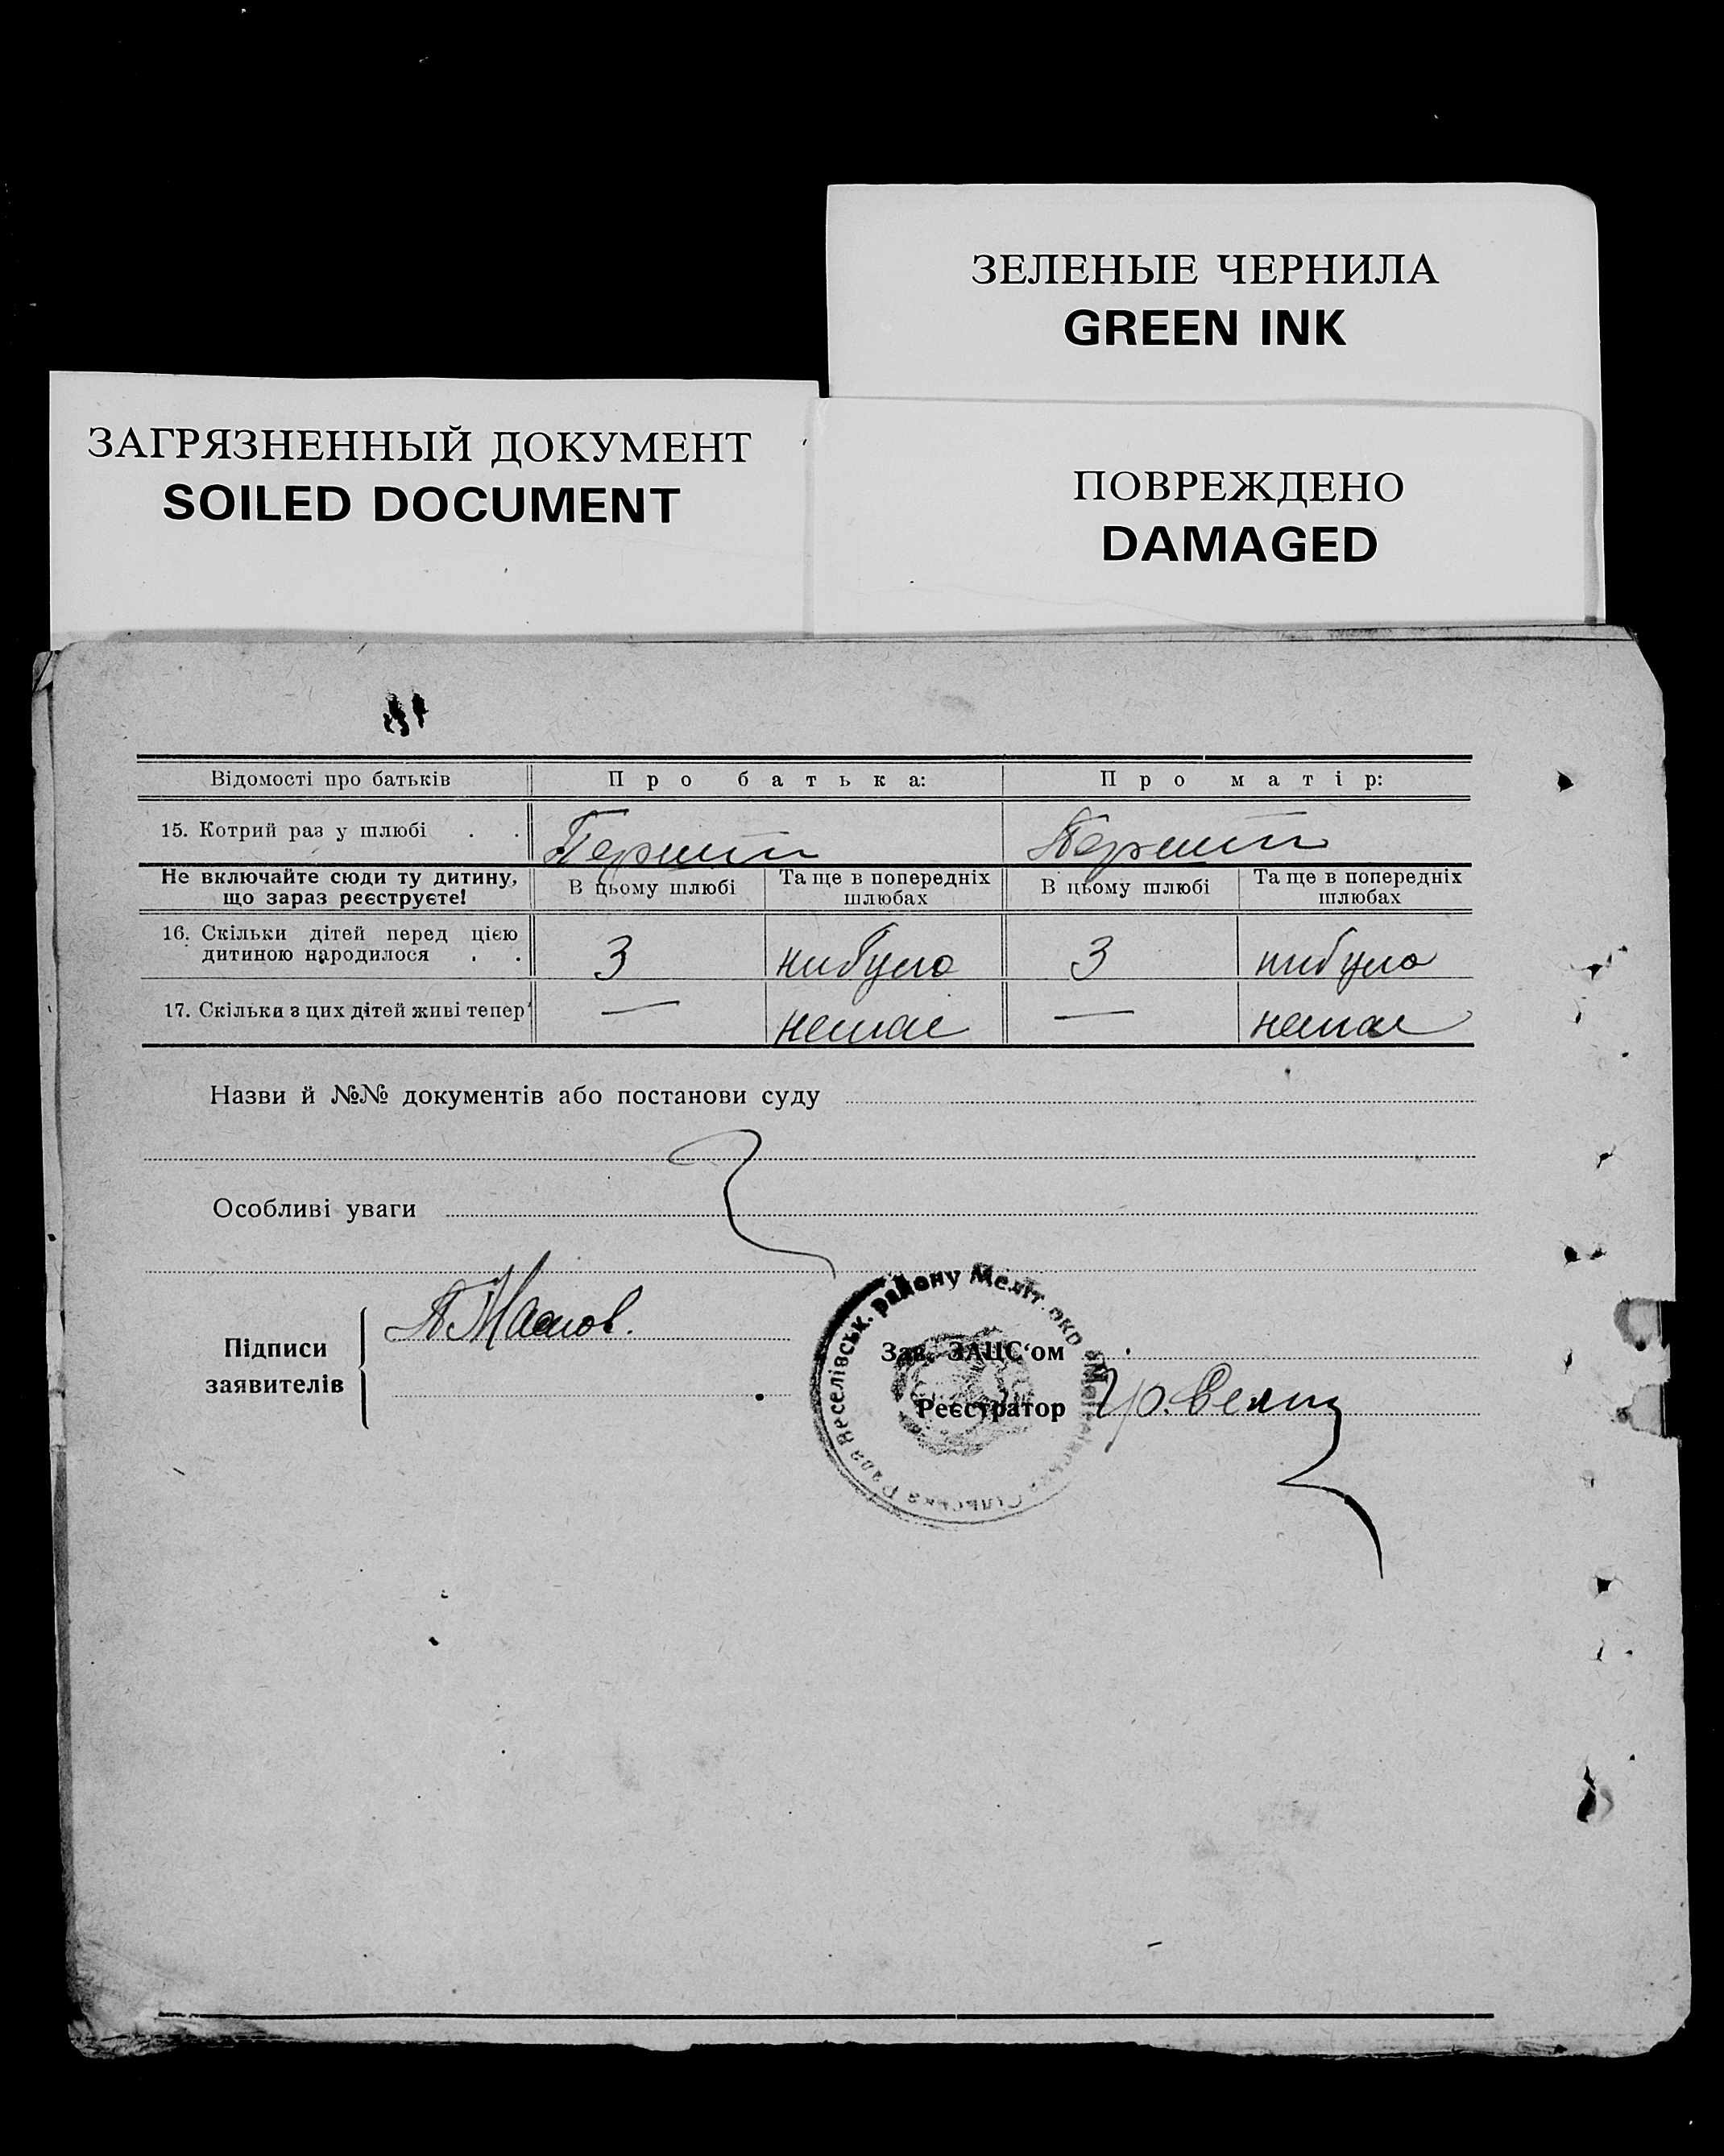 ЗЕЛЕНЫЕ ЧЕРНИЛА
GREEN INK
ЗАГРЯЗНЕННЫЙ ДОКУМЕНТ
SOILED DOCUMENT
ПОВРЕЖДЕНО
DAMAGED
Відомості про батьків Про батька: Про матір:
15. Котрий раз у шлюбі . . Перший Перший
Не включайте сюди ту дитину, що зараз реєструєте!
В цьому шлюбі Та ще в попередніх шлюбах В цьому шлюбі Та ще в попередніх шлюбах
16. Скільки дітей перед цією
дитиною народилося . . 3 нибуло 3 нибуло
17. Скільки з цих дітей живі тепер — немає — немає
Назви й №№ документів або постанови суду
Особливі уваги
Підписи
заявителів
Зав. ЗАЦС‘ом
Реєстратор
Сільська Рада Веселівськ. району Меліт. окр.